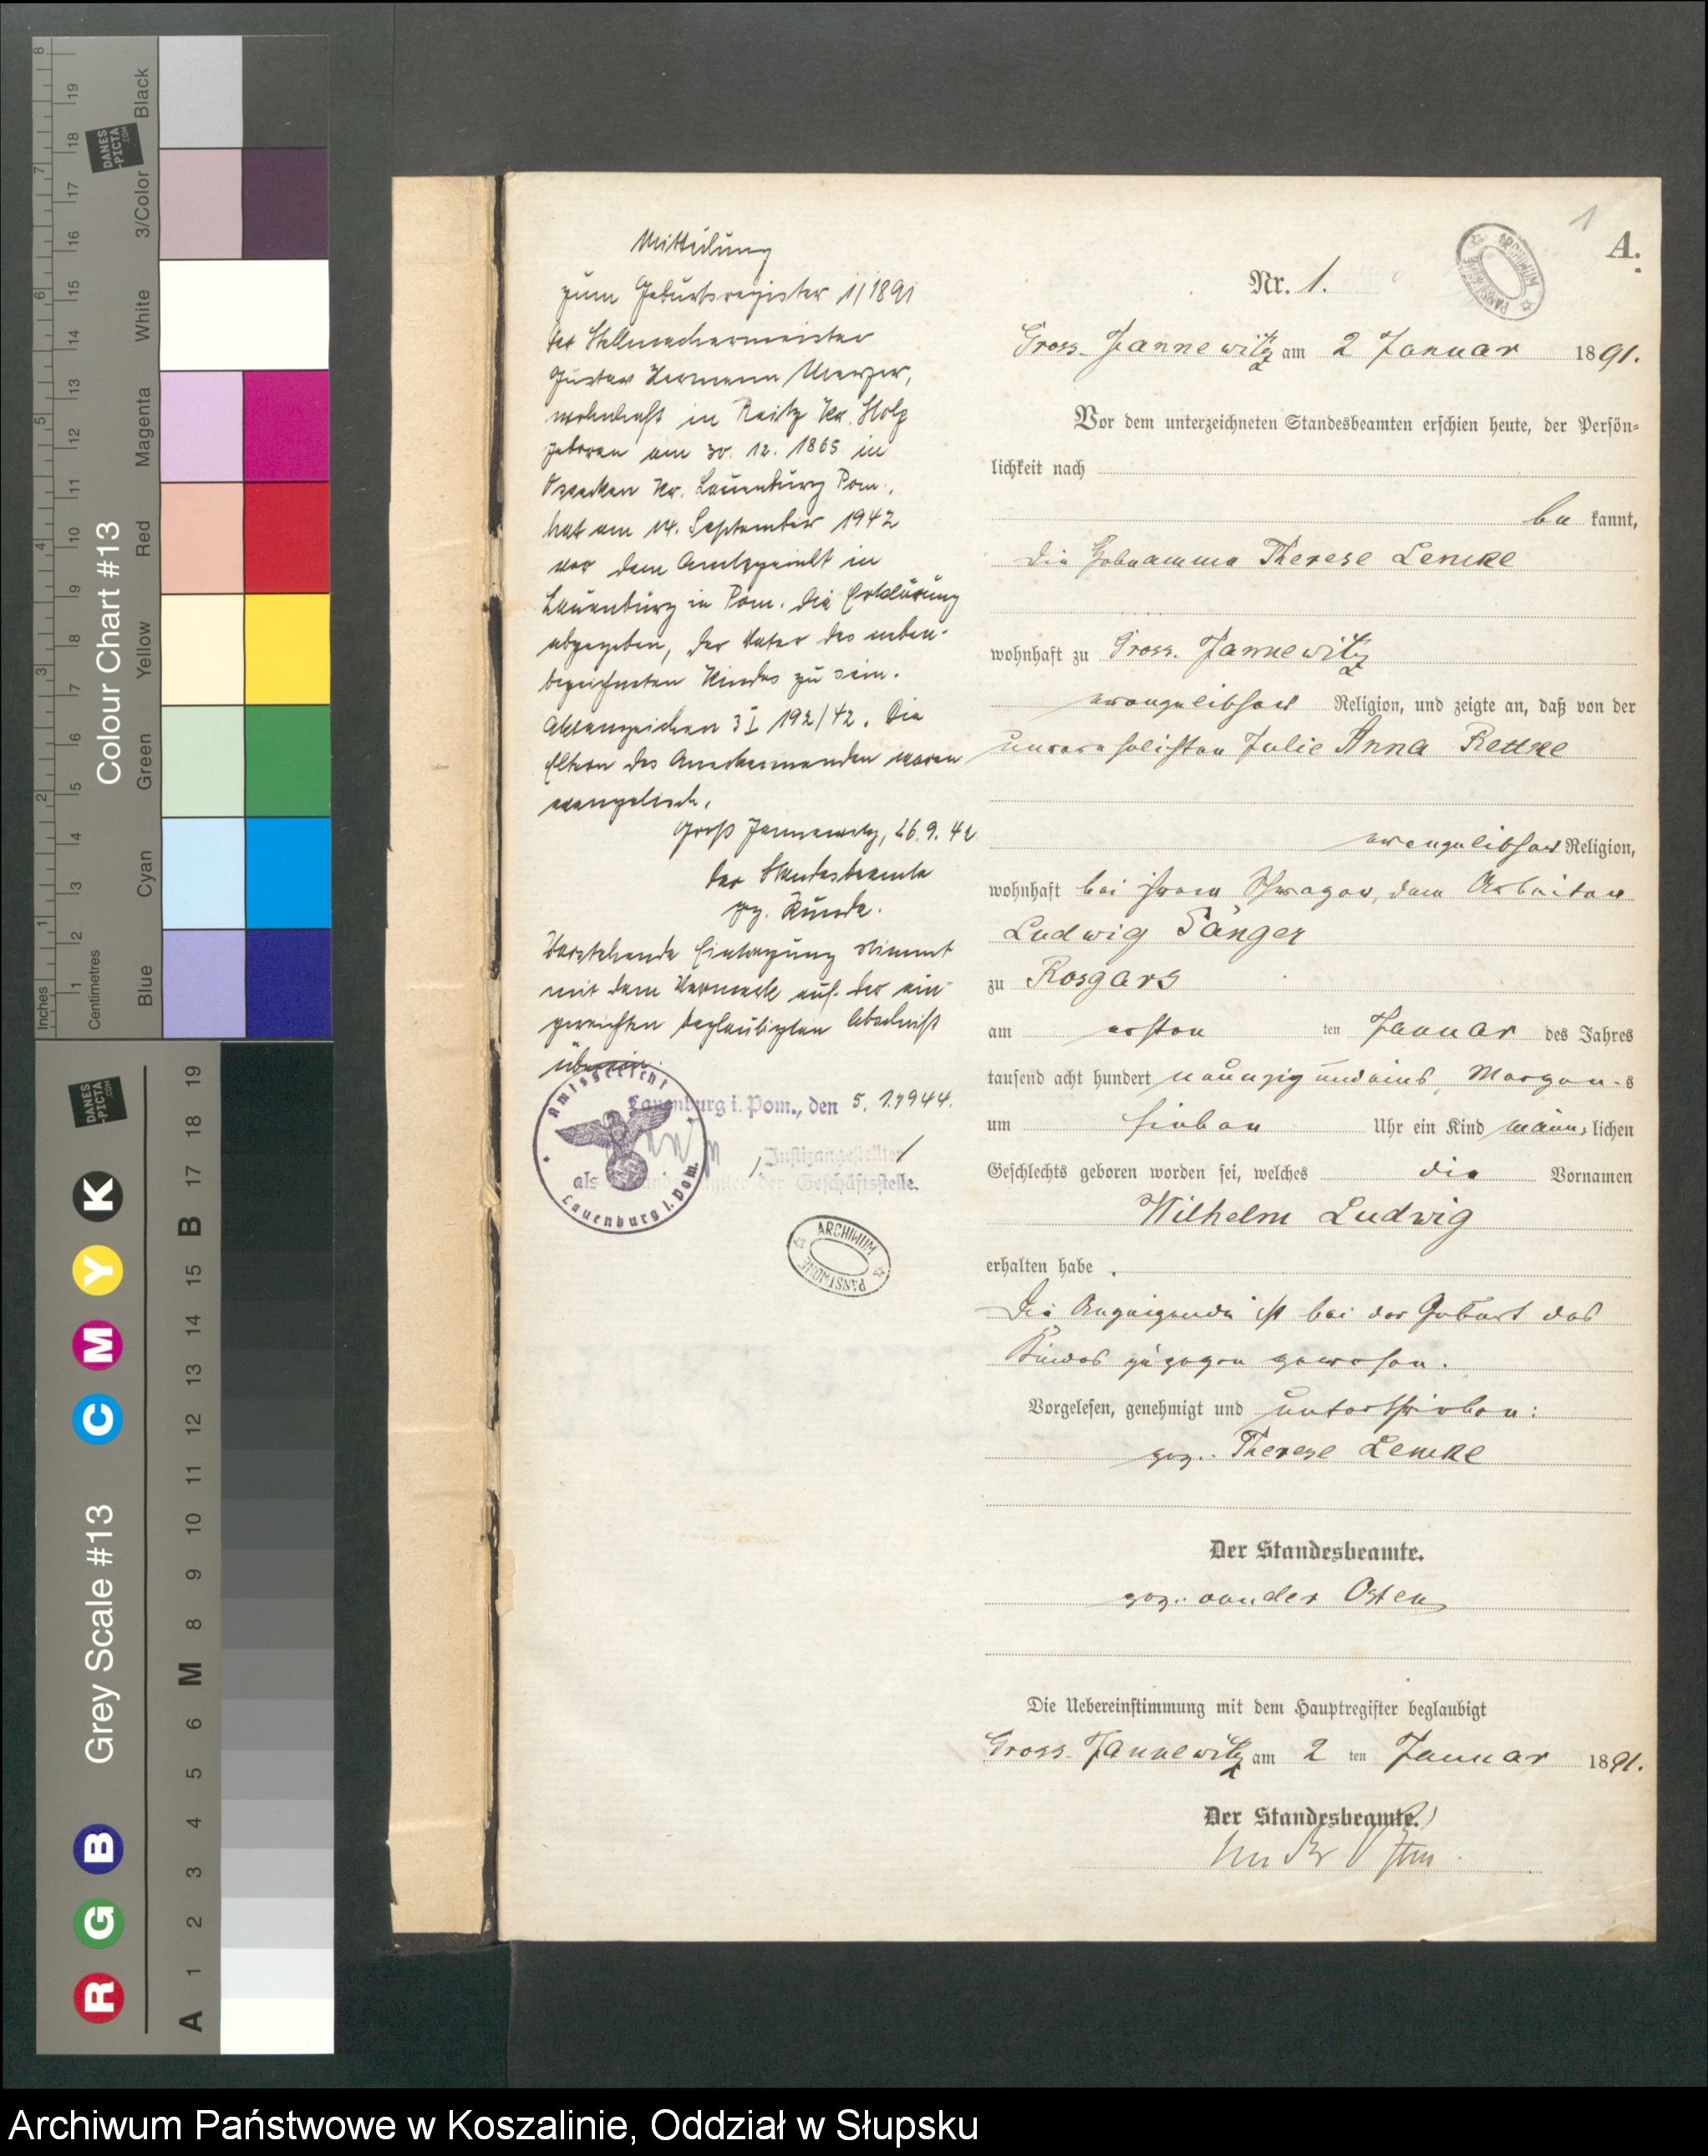 Mitteilung
zum Geburtsregister 1/1891
Der Stellmachermeister
Gustav Hermann
wohnhaft in Reitz Kr. Stolp
geboren am 30. 12. 1865 in
Ossecken Kr. Lauenburg Pom.,
hat am 14. September 1942
vor dem Amtsgericht in
Lauenburg in Pom. die Erklärung
abgegeben, der Vater des neben-
bezeichneten Kindes zu sein.
Aktenzeichen 3 I 192/42. Die
Eltern des Anerkennenden waren
evangelisch.
Groß Jannewitz, 26.9.42
Der Standesbeamte
gez. Kunde.
Vorstehende Eintragung stimmt
mit dem Vermerk auf der ein-
gereichten beglaubigten Abschrift
überein.
Lauenburg i. Pom., den 5. 1. 1944.
Justizangestellter
als der Geschäftsstelle.
Amtsgericht
Lauenburg i. Pom.
ARCHIWUM
PAŃSTWOWE
1
A.
ARCHIWUM
PAŃSTWOWE
Nr. 1.
Gross-Jannewitz am 2 Januar 1891.
Vor dem unterzeichneten Standesbeamten erschien heute, der Persön-
lichkeit nach
be kannt,
die Hebeamme Therese Lemke
wohnhaft zu Gross-Jannewitz
evangelischer Religion, und zeigte an, daß von der
unverehelichten Julie Anna Rettke
evangelischer Religion,
wohnhaft bei ihrem Schwager, dem Arbeiter
Ludwig Sänger
zu Rosgars
am ersten ten Januar des Jahres
tausend acht hundert neunzig und eins, Morgen-s
um sieben Uhr ein Kind männ-lichen
Geschlechts geboren worden sei, welches die Vornamen
Wilhelm Ludwig
erhalten habe.
Die Anzeigende ist bei der Geburt des
Kindes zugegen gewesen.
Vorgelesen, genehmigt und unterschrieben:
gez. Therese Lemke
Der Standesbeamte.
gez. von der Osten
Die Uebereinstimmung mit dem Hauptregister beglaubigt
Gross-Jannewitz am 2 ten Januar 1891.
Der Standesbeamte.
von der Osten
Inches
Centimetres
Colour Chart #13
Blue Cyan Green Yellow Red Magenta White 3/Color Black
DANES
-PICTA
.COM
1 2 3 4 5 6 7 8
1 2 3 4 5 6 7 8 9 10 11 12 13 14 15 16 17 18 19
Grey Scale #13
R G B C M Y K
DANES
-PICTA
.COM
A 1 2 3 4 5 6 M 8 9 10 11 12 13 14 15 B 17 18 19
Archiwum Państwowe w Koszalinie, Oddział w Słupsku